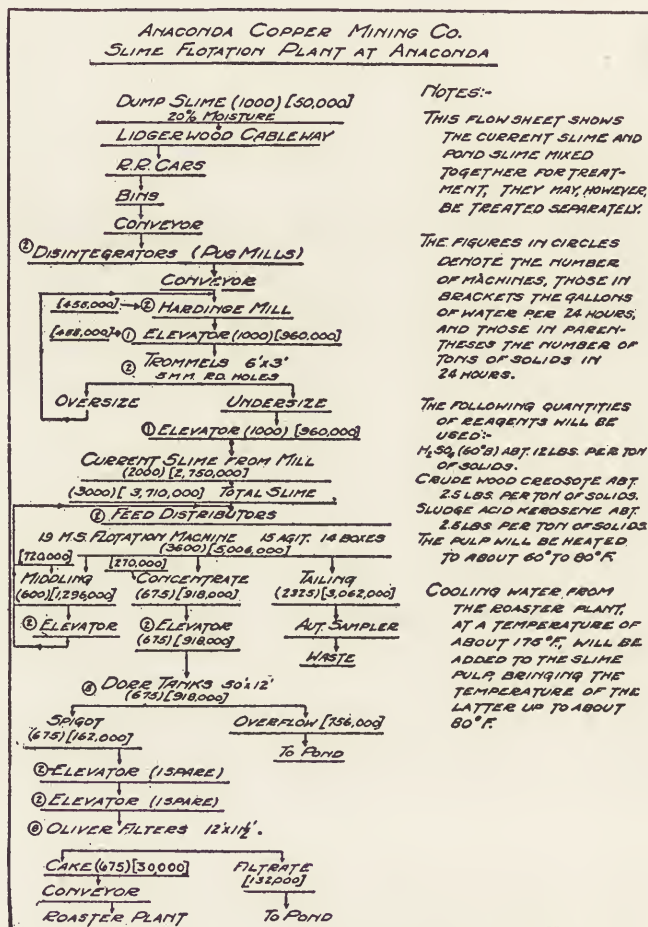 ANACONDA COPPER MINING CO.
SLIME FLOTATION PLANT AT ANACONDA
DUMP SLIME (1000) [50,000]
20% MOISTURE
LIDGERWOOD CABLEWAY
R.R. CARS
BINS
CONVEYOR
② DISINTEGRATORS (PUG MILLS)
CONVEYOR
[455,000] ② HARDINGE MILL
[455,000] ① ELEVATOR (1000) [960,000]
② TROMMELS 6'x3'
5 M.M. RD. HOLES
OVERSIZE UNDERSIZE
① ELEVATOR (1000) [960,000]
CURRENT SLIME FROM MILL
(2000) [2,750,000]
(3000) [3,710,000] TOTAL SLIME
② FEED DISTRIBUTORS
19 M.S. FLOTATION MACHINE 15 AGIT. 14 BOXES
(3600) [5,006,000]
[720,000] [270,000]
MIDDLING CONCENTRATE TAILING
(600) [1,296,000] (675) [918,000] (2325) [3,062,000]
② ELEVATOR ② ELEVATOR AUT. SAMPLER
(675) [918,000]
WASTE
DORR TANKS 50'x12'
(675) [918,000]
SPIGOT OVERFLOW [756,000]
(675) [162,000]
TO POND
② ELEVATOR (1 SPARE)
② ELEVATOR (1 SPARE)
OLIVER FILTERS 12'x11½'.
CAKE (675) [30,000] FILTRATE
[132,000]
CONVEYOR
ROASTER PLANT TO POND
NOTES:-
THIS FLOW SHEET SHOWS
THE CURRENT SLIME AND
POND SLIME MIXED
TOGETHER FOR TREAT-
MENT, THEY MAY, HOWEVER,
BE TREATED SEPARATELY.
THE FIGURES IN CIRCLES
DENOTE THE NUMBER
OF MACHINES, THOSE IN
BRACKETS THE GALLONS
OF WATER PER 24 HOURS,
AND THOSE IN PAREN-
THESES THE NUMBER OF
TONS OF SOLIDS IN
24 HOURS.
THE FOLLOWING QUANTITIES
OF REAGENTS WILL BE
USED:-
H₂SO₄ (60°B) ABT. 12 LBS. PER TON
OF SOLIDS.
CRUDE WOOD CREOSOTE ABT.
2.5 LBS. PER TON OF SOLIDS.
SLUDGE ACID KEROSENE ABT.
2.6 LBS PER TON OF SOLIDS
THE PULP WILL BE HEATED
TO ABOUT 60° TO 80°F.
COOLING WATER FROM
THE ROASTER PLANT,
AT A TEMPERATURE OF
ABOUT 175°F, WILL BE
ADDED TO THE SLIME
PULP, BRINGING THE
TEMPERATURE OF THE
LATTER UP TO ABOUT
80°F.